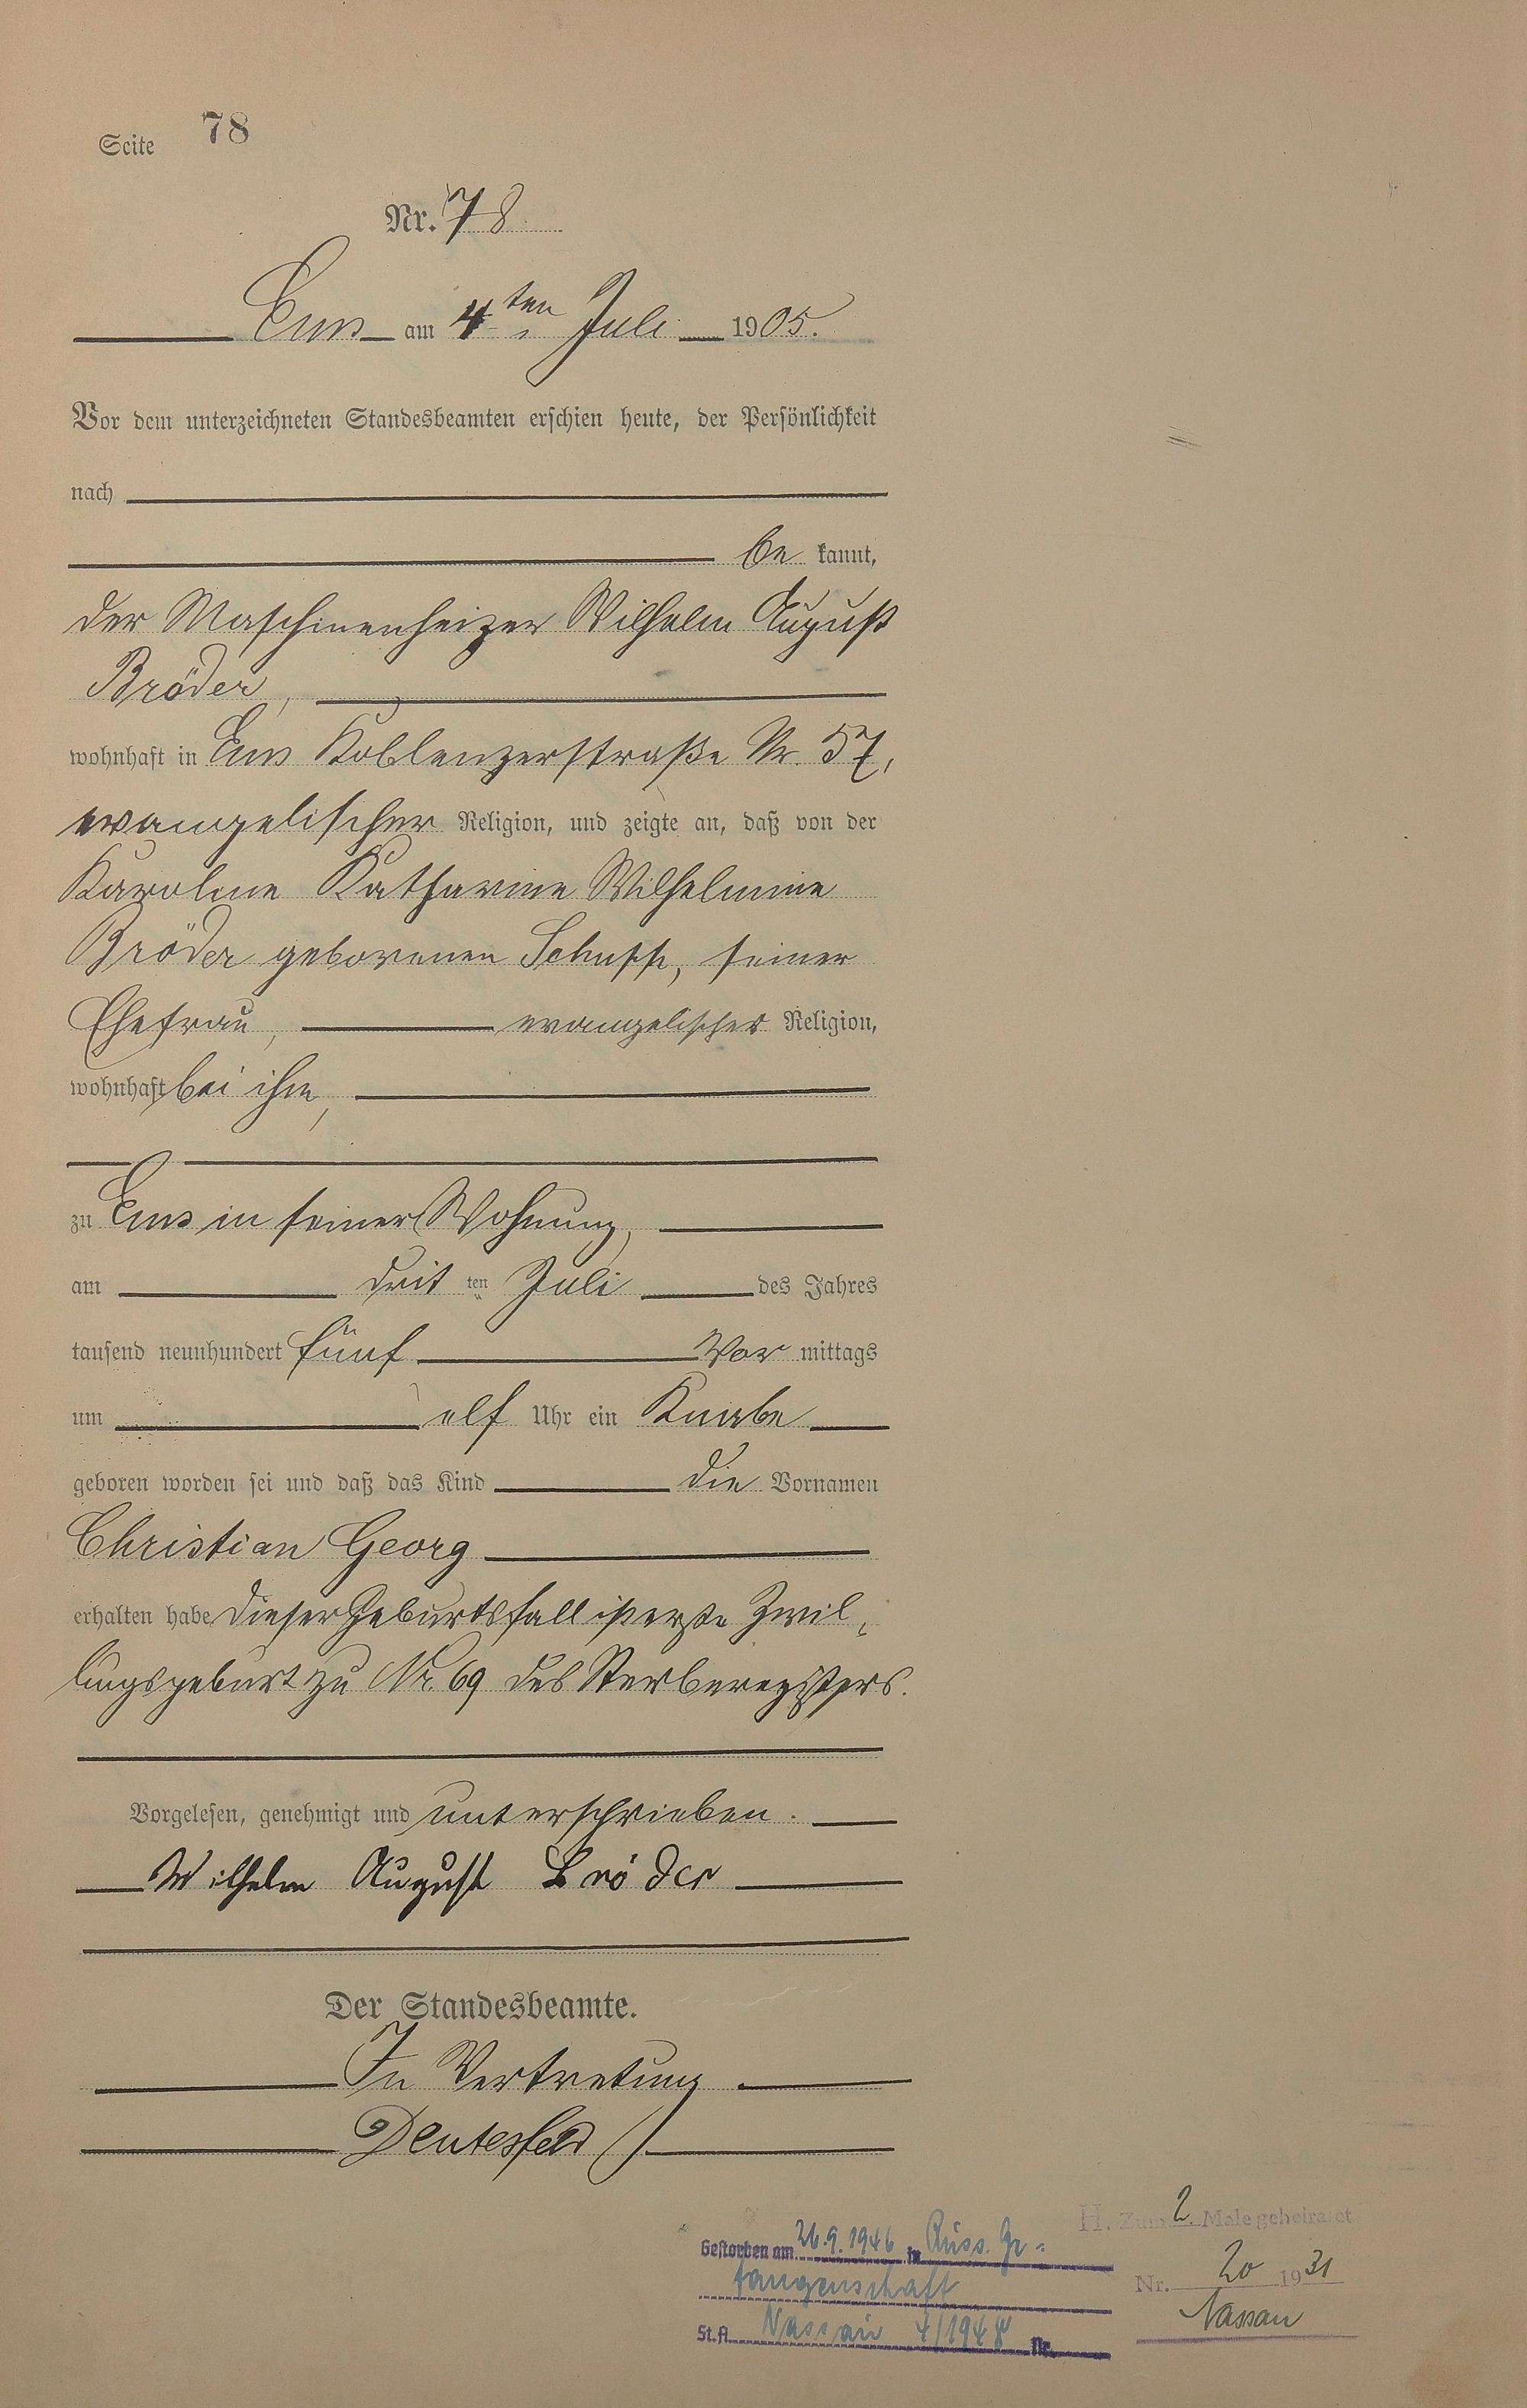 Seite 78
Nr. 78
Ems am 4ten Juli 1905.
Vor dem unterzeichneten Standesbeamten erschien heute, der Persönlichkeit
nach
be kannt,
der Maschinenheizer Wilhelm August
Bröder,
wohnhaft in Ems Koblenzerstraße Nr. 57,
evangelischer Religion, und zeigte an, daß von der
Karoline Katharine Wilhelmine
Bröder geborenen Schupp, seiner
Ehefrau, evangelischer Religion,
wohnhaft bei ihm,
zu Ems in seiner Wohnung,
am dritten Juli des Jahres
tausend neunhundert fünf Vor mittags
um elf Uhr ein Knabe
geboren worden sei und daß das Kind die Vornamen
Christian Georg
erhalten habe Dieser Geburtsfall ist erste Zwil-
lingsgeburt zu Nr. 69 des Sterberegisters.
Vorgelesen, genehmigt und unterschrieben.
Wilhelm August Bröder
Der Standesbeamte.
In Vertretung
Deutesfeld
H. Zum 2. Male geheiratet
Nr. 20 1931
Nassau
Gestorben am 26.9.1946 in Russ. Ge-
fangenschaft
St.A. Nassau 4/1948 Nr.